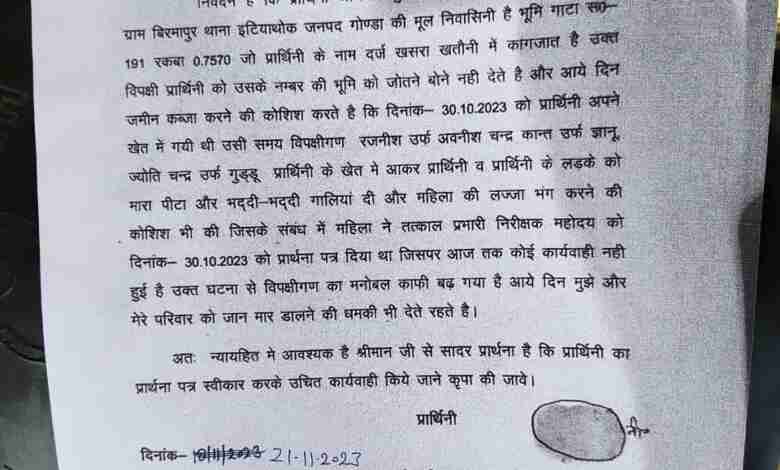 ग्राम बिरमापुर थाना इटियाथोक जनपद गोण्डा की मूल निवासिनी है भूमि गाटा सं0–
191 रकबा 0.7570 जो प्रार्थिनी के नाम दर्ज खसरा खतौनी में कागजात है उक्त
विपक्षी प्रार्थिनी को उसके नम्बर की भूमि को जोतने बोने नही देते है और आये दिन
जमीन कब्जा करने की कोशिश करते है कि दिनांक– 30.10.2023 को प्रार्थिनी अपने
खेत में गयी थी उसी समय विपक्षीगण रजनीश उर्फ अवनीश चन्द्र कान्त उर्फ ज्ञानू,
ज्योति चन्द्र उर्फ गुड्डू प्रार्थिनी के खेत मे आकर प्रार्थिनी व प्रार्थिनी के लड़के को
मारा पीटा और भद्दी–भद्दी गालियां दी और महिला की लज्जा भंग करने की
कोशिश भी की जिसके संबंध में महिला ने तत्काल प्रभारी निरीक्षक महोदय को
दिनांक– 30.10.2023 को प्रार्थना पत्र दिया था जिसपर आज तक कोई कार्यवाही नही
हुई है उक्त घटना से विपक्षीगण का मनोबल काफी बढ़ गया है आये दिन मुझे और
मेरे परिवार को जान मार डालने की धमकी भी देते रहते है।
अतः न्यायहित मे आवश्यक है श्रीमान जी से सादर प्रार्थना है कि प्रार्थिनी का
प्रार्थना पत्र स्वीकार करके उचित कार्यवाही किये जाने कृपा की जावे।
प्रार्थिनी
नि०
दिनांक– 21.11.2023